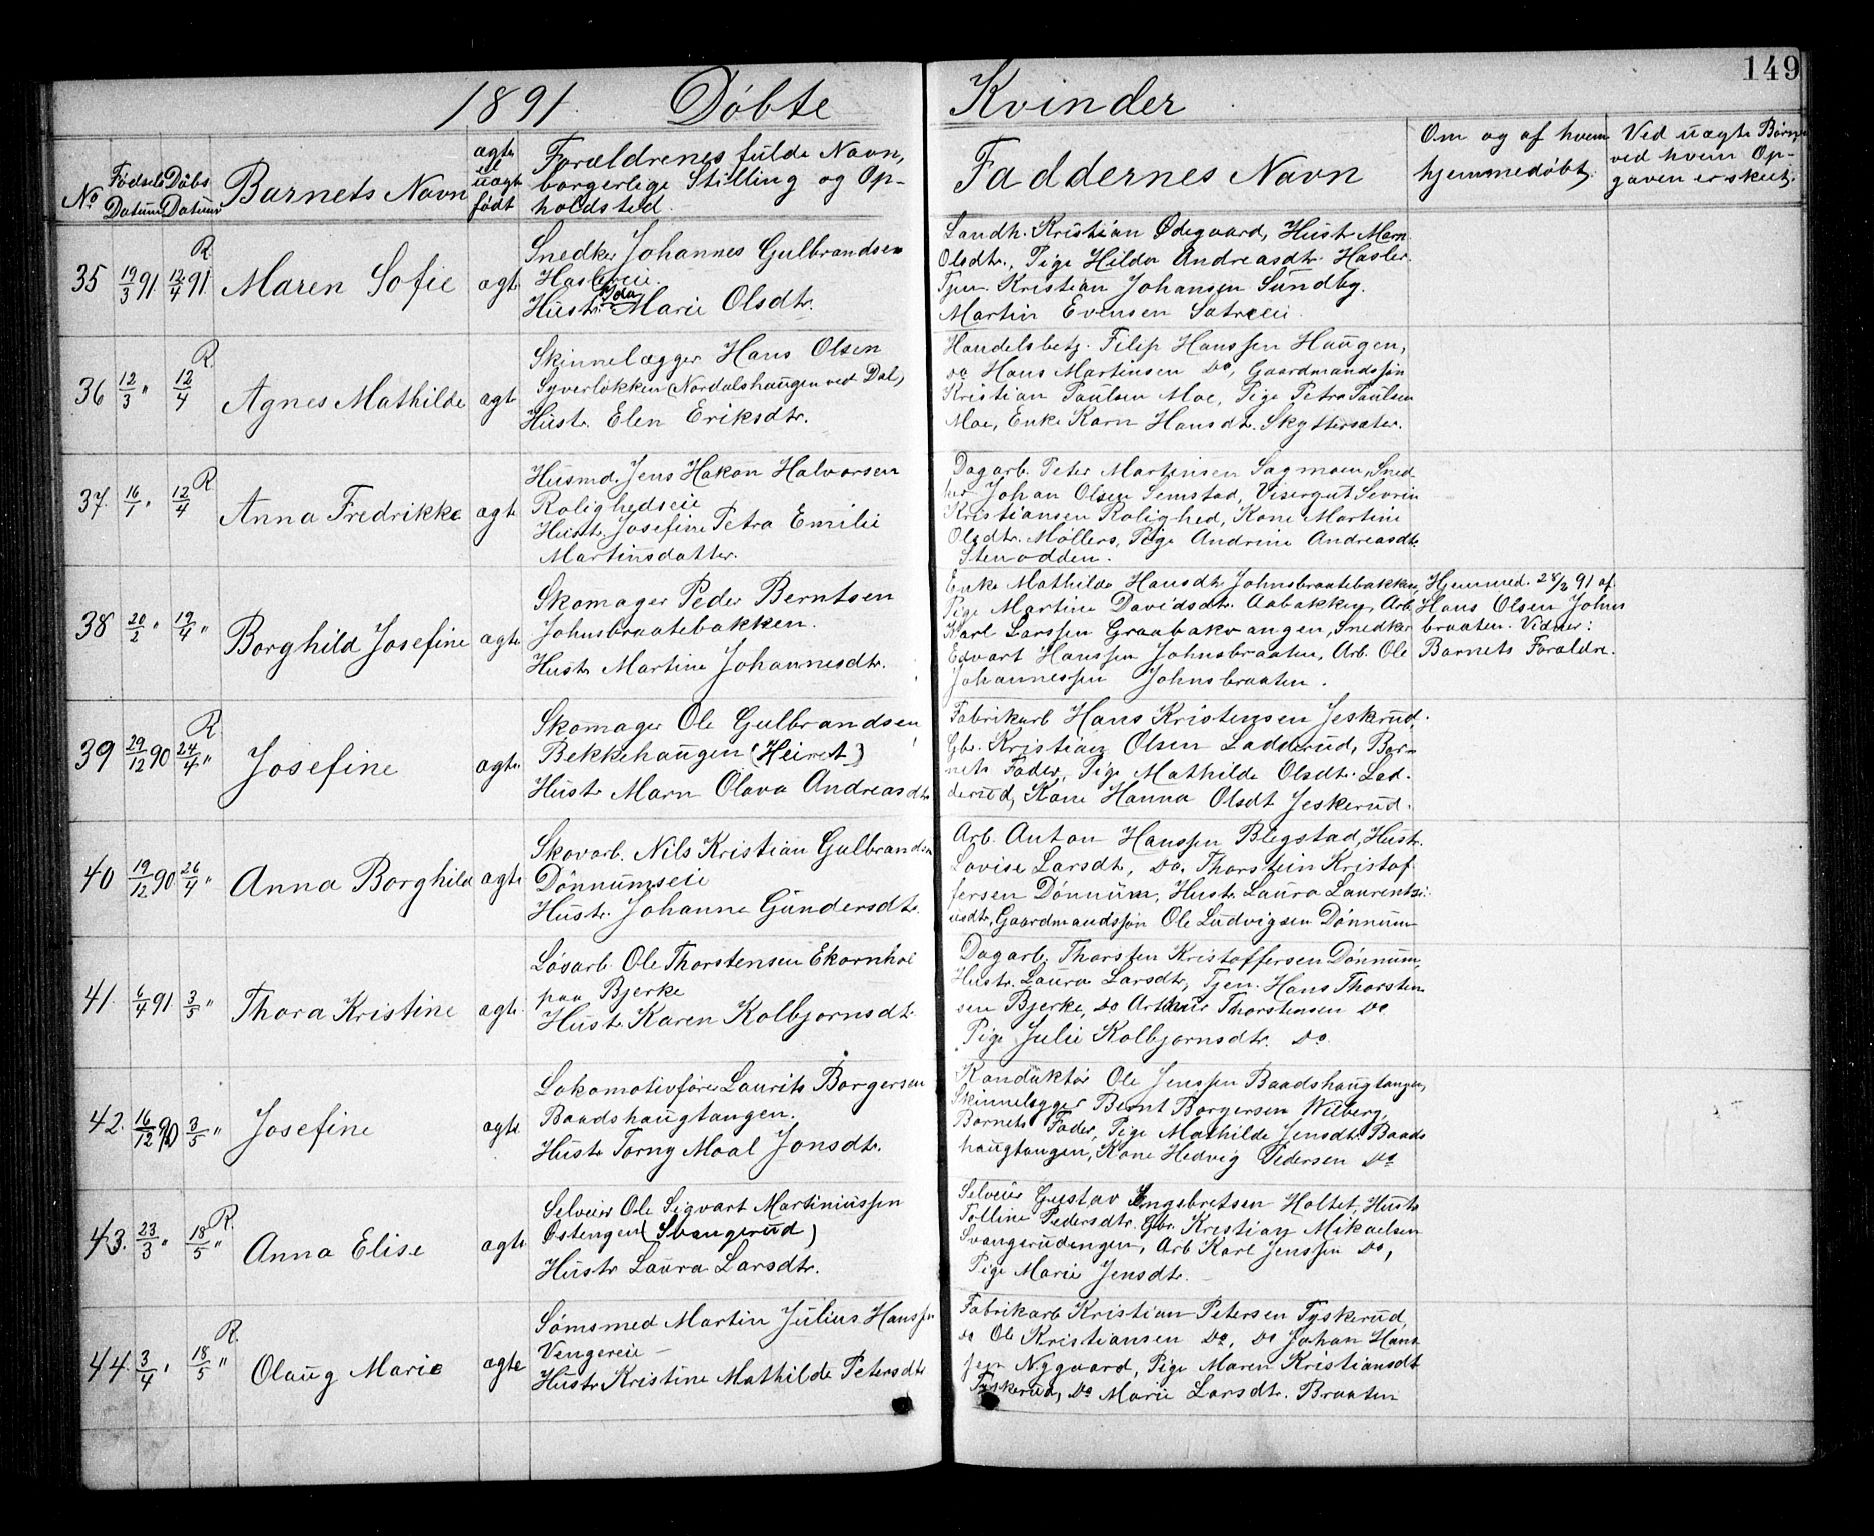 149
1891. Døbte Kvinder
No
Fødsels Datum
Døbs Datum
Barnets Navn
ægte el uægte født
Forældrenes fulde Navn,
borgerlige Stilling og Op-
holdsted.
Faddernes Navn
Om og af hvem
hjemmedøbt.
Ved uægte Børn,
ved hvem Op-
gaven er skeet.
35 19/3 91 12/4 91 R. Maren Sofie ægt.
Snedker Johannes Gulbrandsen
Haslereie.
Hustr. Marie Olsdtr.
Landh. Kristian Ødegaard, Hustr. Marn
Olsdtr., Pige Hilda Andreasdtr. Hasler.
Tjen. Kristian Johansen Sundby.
Martin Evensen Sætreeie.
36 12/3 " 12/4 R. Agnes Mathilde ægt
Skinnelægger Hans Olsen
Syverløkken (Nordalshaugen ved Dal)
Hustr. Elen Eriksdtr.
Handelsbetj. Filip Hanssen Haugen,
do Hans Martinsen Do, Gaardmandssøn
Kristian Paulsen Moe, Pige Petra Paulsen
Moe, Enke Karn Hansdtr. Skyttersæter.
37. 16/1 " 12/4 R Anna Fredrikke ægt
Husmd. Jens Hakon Halvorsen
Rolighedseie
Hustr. Josefine Petra Emilie
Martinsdatter.
Dagarb. Peter Martinsen Sagmoen, Sned
ker Johan Olsen Semstad, Visergut Sevrin
Kristiansen Rolighed, Kone Martine
Olsdtr. Møllers, Pige Andrine Andreasdtr.
Stenodden.
38 20/2 " 19/4 " Borghild Josefine ægte
Skomager Peder Berntsen
Johnsbraatebakken.
Hustr Martine Johannesdtr.
Enke Mathilde Hansdtr. Johnsbraatebakken,
Pige Martine Davidsdtr. Aabakken, Arb
Karl Larssen Graabakvangen, Snedker
Edvart Hanssen Johnsbraaten, Arb. Ole
Johannessen Johnsbraaten.
Hjemmed. 28/2 91 af
Hans Olsen Johns
braaten. Vidner:
Barnets Forældre.
39 29/12 90 24/4 " R Josefine ægte.
Skomager Ole Gulbrandsen,
Bekkehaugen (Heiret)
Hustr Marn Olava Andreasdtr
Fabrikarb Hans Kristensen Jeskrud,
Gbr. Kristian Olsen Ladderud, Bar-
nets Fader, Pige Mathilde Olsdtr. Lad-
derud, Kone Hanna Olsdt Jeskerud.
40 19/12 90 26/4 " Anna Borghild ægte
Skovarb. Nils Kristian Gulbrandsen
Dønnumseie
Hustr. Johanne Gundersdtr.
Arb. Anton Hanssen Blegstad, Hustr.
Lovise Larsdtr, Do. Thorstein Kristof
fersen Dønnum, Hustr. Laura Laurentsi:
usdtr, Gaardmandssøn Ole Ludvigsen Dønnum
41. 6/4 91 3/5 " Thora Kristine ægt.
Løsarb. Ole Thorstensen Ekornhol
paa Bjerke
Hustr. Karen Kolbjørnsdtr.
Dagarb. Thorsten Kristoffersen Dønnum,
Hustr. Laura Larsdtr, Tjen. Hans Thorsten
sen Bjerke, Do Arthur Thorstensen Do
Pige Julie Kolbjørnsdtr. Do.
42. 16/12 90 3/5 " Josefine ægte
Lokomotivfører Laurits Borgersen
Baadshaugtangen.
Hustr Torny Moal Jonsdtr.
Konduktør Ole Jenssen Baadshaugtangen,
Skinnelægger Bernt Borgersen Wilberg,
Barnets Fader, Pige Mathilde Jensdtr. Baads
haugtangen, Kone Hedvig Pedersen Do
43. 23/3 " 18/5 " R. Anna Elise ægte
Selveier Ole Sigvart Martiniussen
Østengen (Svangerud)
Hustr Laura Larsdtr.
Selveier Gustav Engebretsen Holtet, Hustr
Tolline Pedersdtr. Gbr. Kristian Mikaelsen
Svangerudengen, Arb Karl Jenssen Do,
Pige Marie Jensdtr.
44. 3/4 " 18/5 " R. Olaug Marie ægte
Sømsmed Martin Julius Hanssen
Vengereie
Hustr. Kristine Mathilde Petersdtr
Fabrikarb Kristian Petersen Tyskerud,
do Ole Kristiansen Do, Do Johan Hans
sen Nygaard, Pige Maren Kristiansdtr
Tyskerud, Do Marie Larsdtr. Braaten